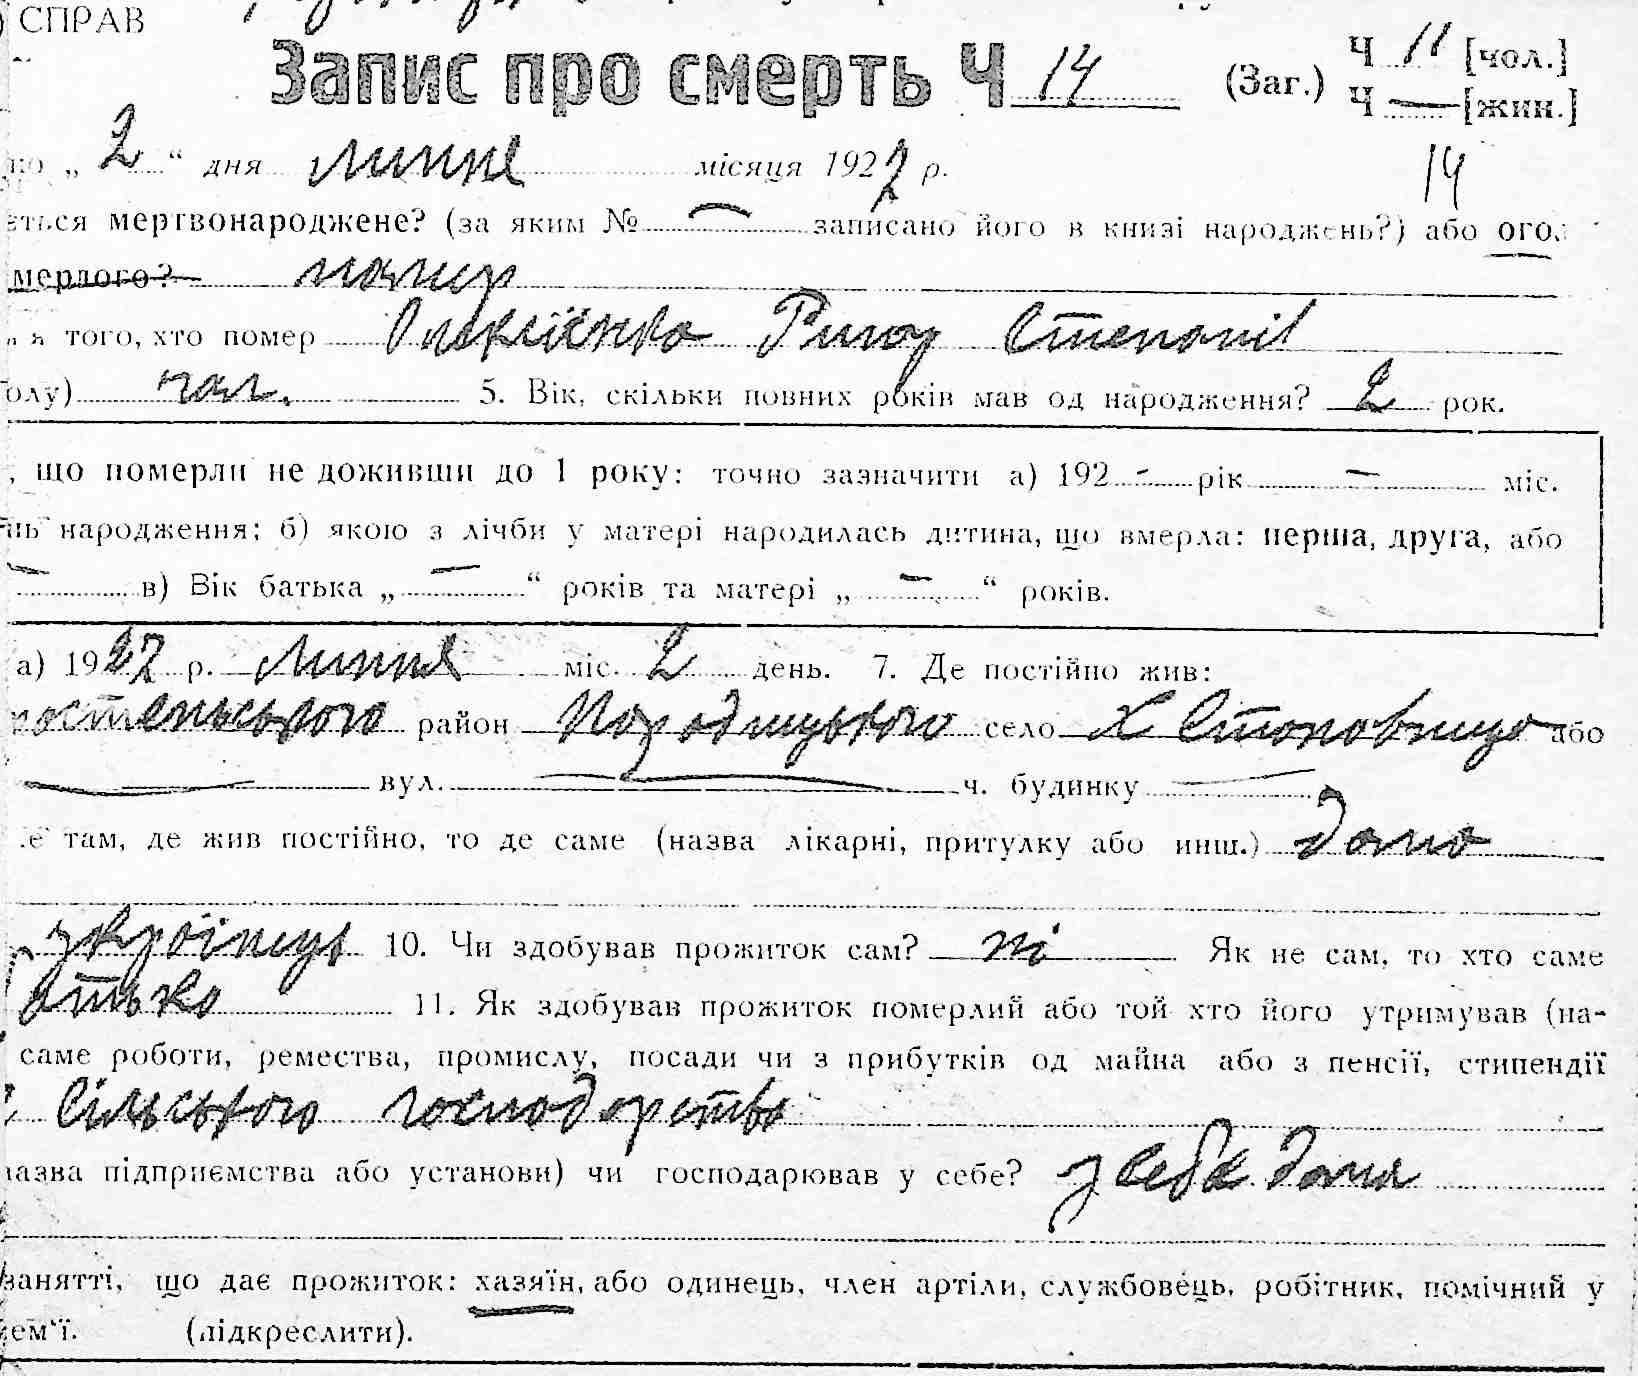 СПРАВ
Запис про смерть Ч 14 (Заг.) Ч 11 [чол.]
Ч — [жин.]
но „ 2 “ дня липня місяця 1927 р. 14
ється мертвонароджене? (за яким № — записано його в книзі народжень?) або ого
мерлого? помер
я того, хто помер Олексієнко Ригор Степанів
олу) чол. 5. Вік, скільки повних років мав од народження? 2 рок.
, що померли не доживши до 1 року: точно зазначити а) 192 - рік — міс.
нь народження; б) якою з лічби у матері народилась дитина, що вмерла: перша, друга, або
— в) Вік батька „ — “ років та матері „ — “ років.
а) 1927 р. липня міс. 2 день. 7. Де постійно жив:
ростенського район Народицького село Х Ставовищо або
— вул. — ч. будинку —
е там, де жив постійно, то де саме (назва лікарні, притулку або инш.) дома
українець 10. Чи здобував прожиток сам? ні Як не сам, то хто саме
атько 11. Як здобував прожиток померлий або той хто його утримував (на-
саме роботи, ремества, промислу, посади чи з прибутків од майна або з пенсії, стипендії
Сільського господарства
назва підприємства або установи) чи господарював у себе? у себе дома
занятті, що дає прожиток: хазяїн, або одинець, член артіли, службовець, робітник, помічний у
сем'ї. (підкреслити).